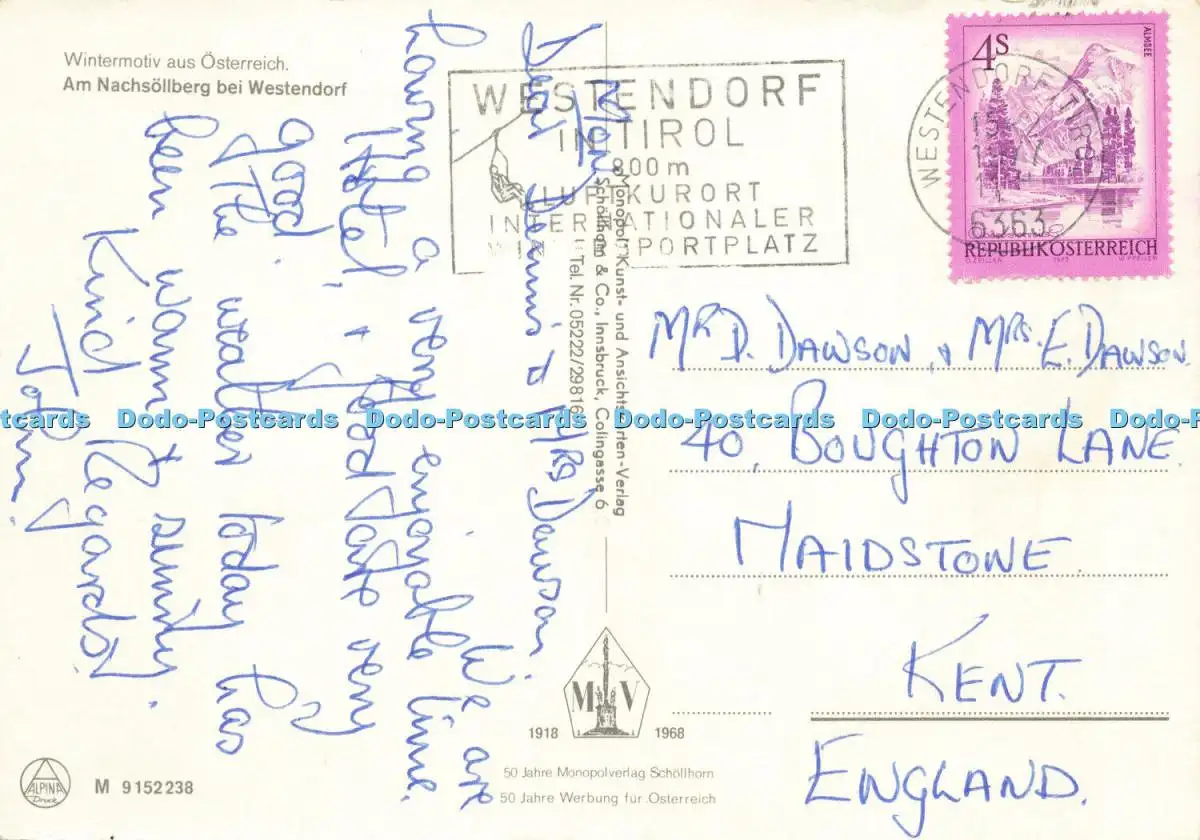 Wintermotiv aus Österreich.
Am Nachsöllberg bei Westendorf
WESTENDORF
IN TIROL
800 m
LUFTKURORT
INTERNATIONALER
WINTERSPORTPLATZ
4S
ALMSEE
REPUBLIK ÖSTERREICH
WESTENDORF TIROL
6363
Mon
Dear Dennis & Mrs Dawson
We are
having a very enjoyable time.
Hotel & food quite very
good.
The weather today has
been warm & sunny.
Kind Regards
John
Monopol, Kunst- und Ansichtskarten-Verlag
Schöllhorn & Co., Innsbruck, Colingasse 6
Tel. Nr. 05222/29816
MR D. DAWSON & MRS. E. DAWSON.
40, BOUGHTON LANE
MAIDSTONE
KENT.
ENGLAND.
M V
1918 1968
50 Jahre Monopolverlag Schöllhorn
50 Jahre Werbung für Österreich
ALPINA
Druck
M 9152238
Dodo-Postcards Dodo-Postcards Dodo-Postcards Dodo-Postcards